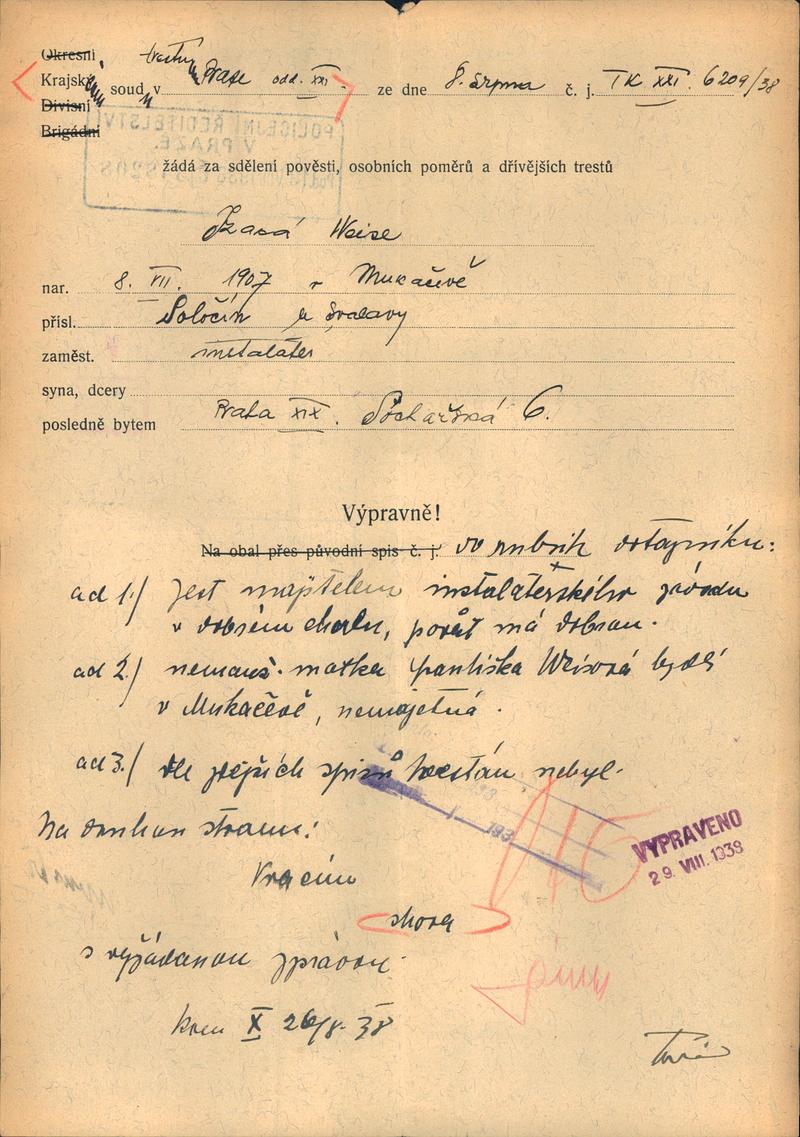 Okresní
Krajský trestní soud v Praze odd. XXI. ze dne 8. srpna č. j. TK XXI. 6209/38
Divisní
Brigádní
POLICEJNÍ ŘEDITELSTVÍ
V PRAZE.
žádá za sdělení pověsti, osobních poměrů a dřívějších trestů
Weise
nar. 8. VII. 1907 v Mukačevě
přísl. Soločin u Svalavy
zaměst. instalatér
syna, dcery
posledně bytem Praha XIX. Sochařská 6.
Výpravně!
Na obal přes původní spis č. j. do rubrik dotazníku:
ad 1./ Jest majitelem instalatérského závodu
v dobrém chodu, pověst má dobrou.
ad 2./ nemanž. matka Františka Weisová bydlí
v Mukačevě, nemajetná.
ad 3./ dle zdejších spisů trestán nebyl.
Na druhou stranu:
Vracím
shora
s vyžádanou zprávou.
VYPRAVENO
29. VIII. 1938
kom X 26/8. 38